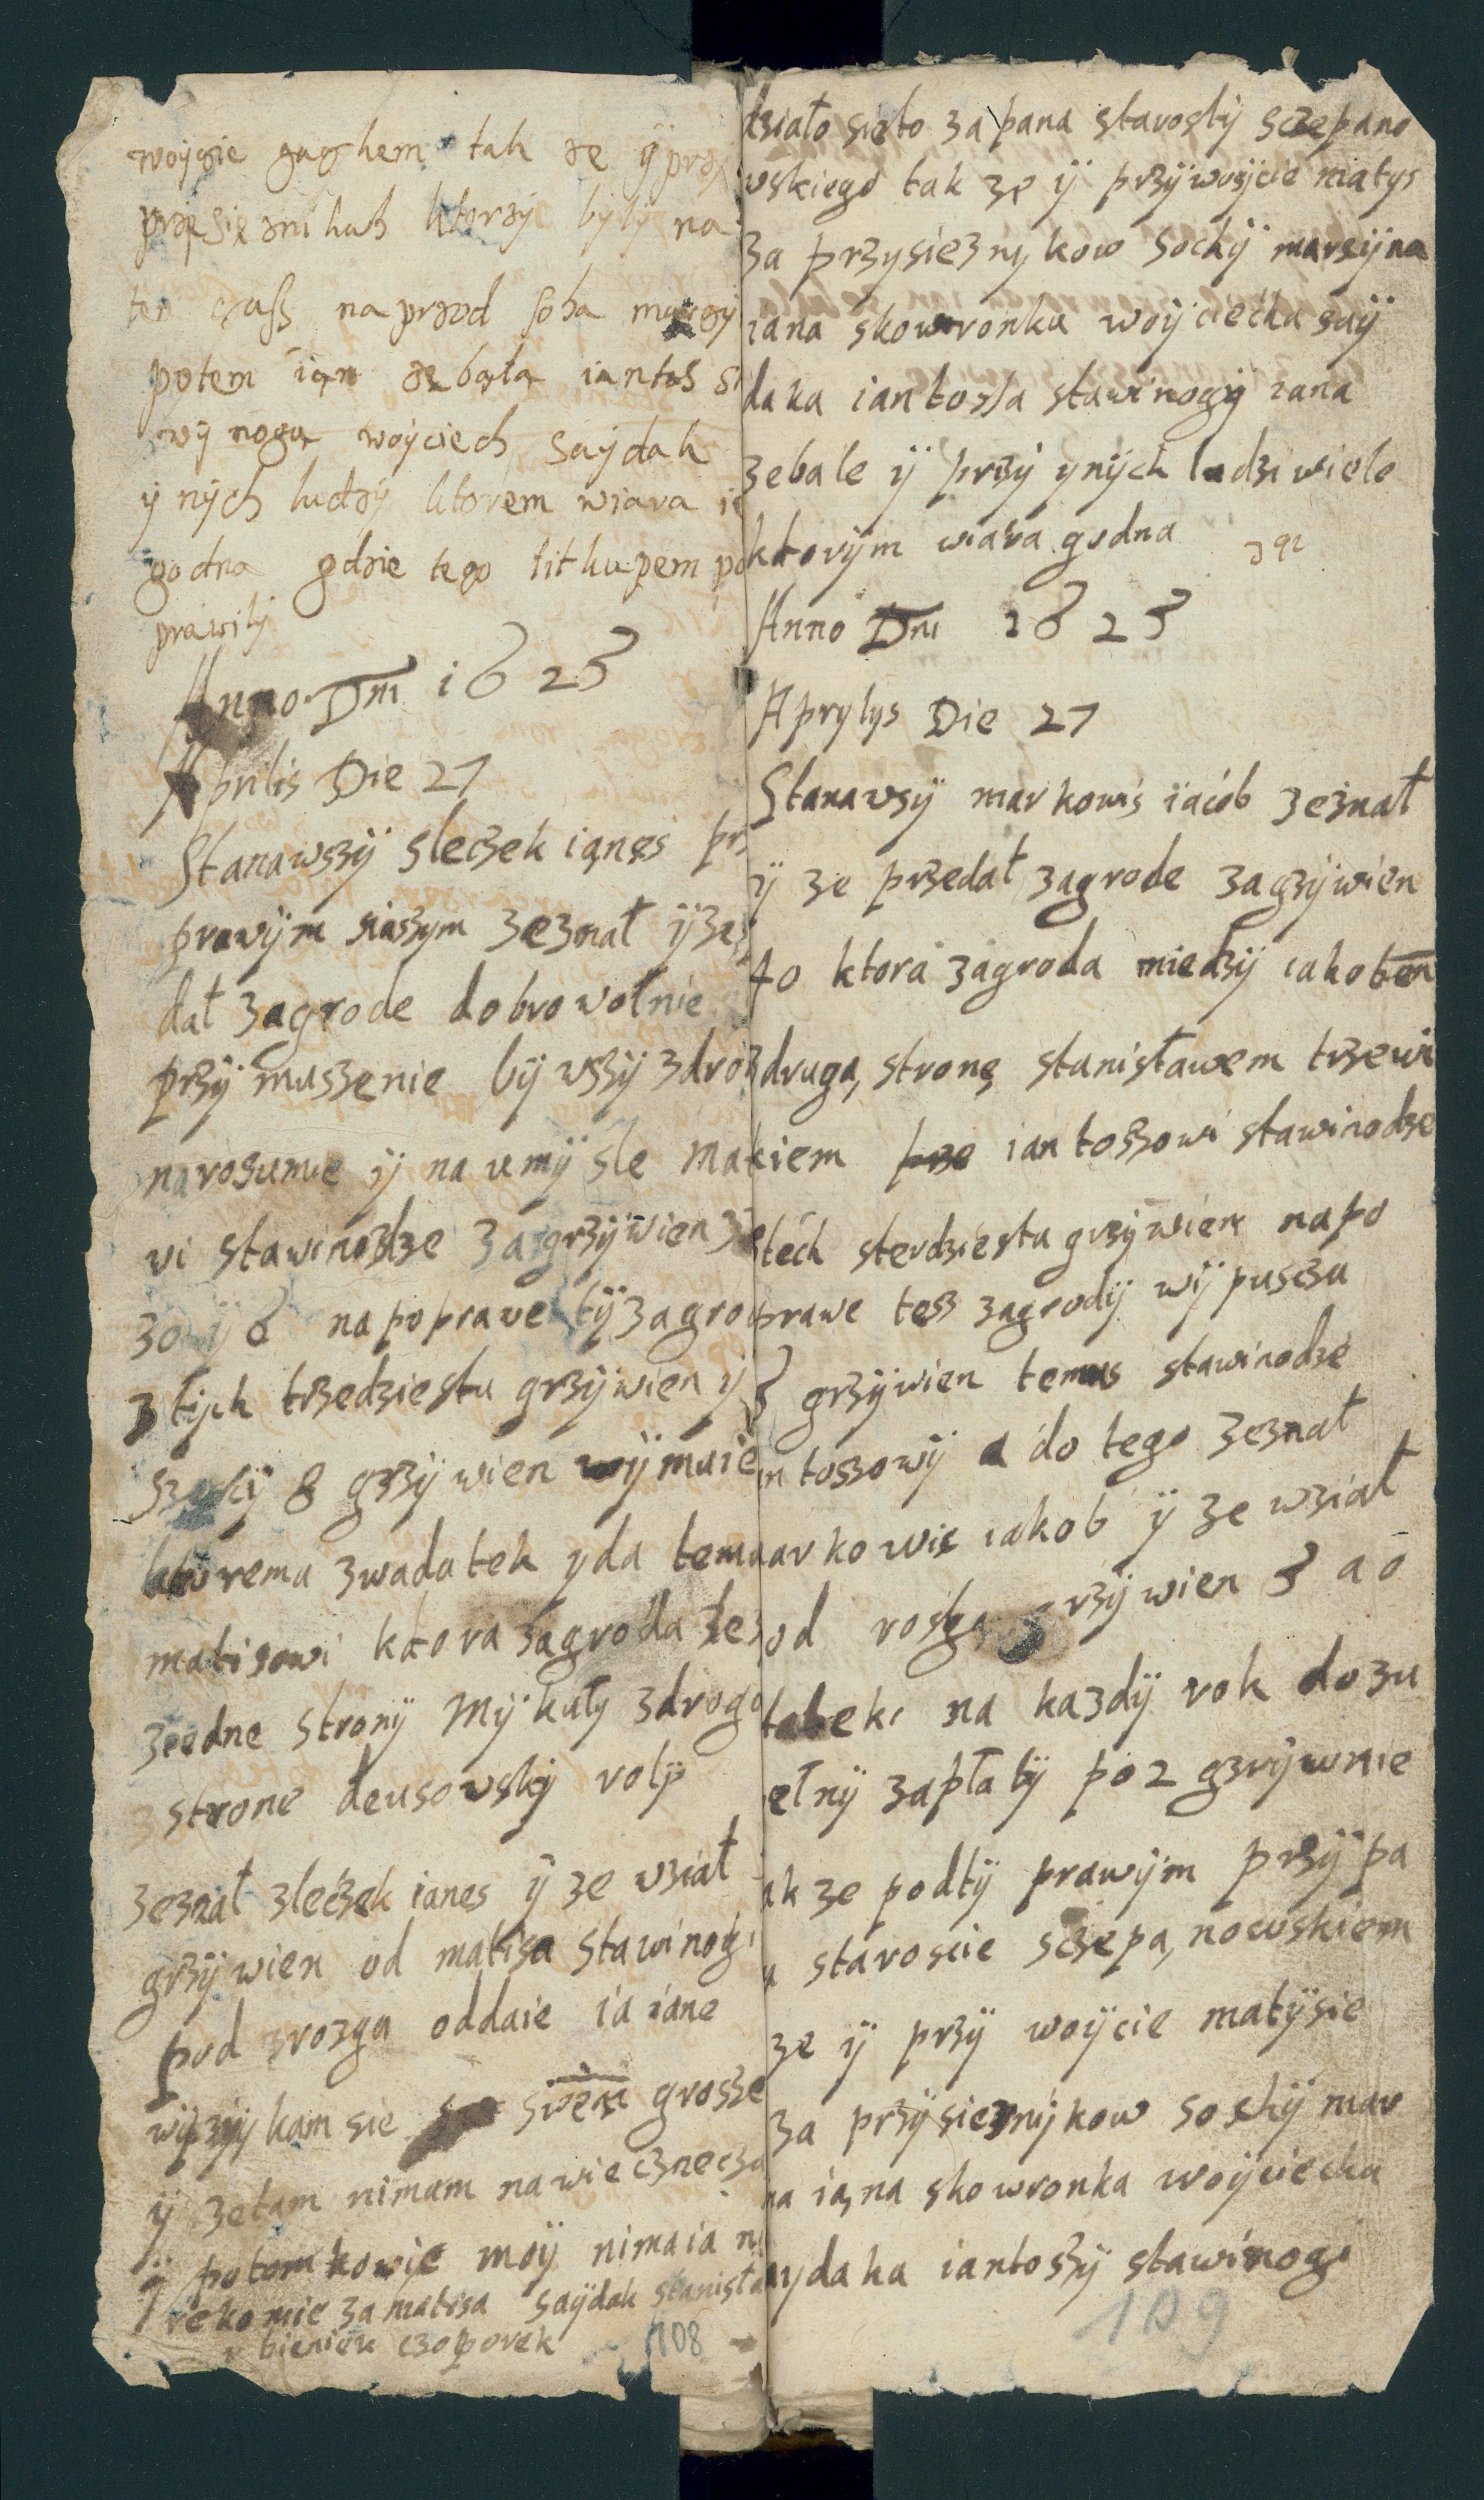 woycie gaykem tak ze ÿ prz
przesięznikah ktorzÿ bÿlÿ na
ten czass na przod soha
potem ian zebała iantos s
wÿ noga woÿciech saÿdak
ÿ nÿch ludzÿ ktorem wiara ie
godna gdzie tego litkupem po
prawilÿ
Anno Dni 1623
Aprilis Die 27
Stanawszÿ sleczek ianes prz
prawÿm naszym zeznał ÿ ze
dał zagrode dobrowolnie
przÿ muszenie bÿ wszÿ zdro
na rozumie ÿ na umÿsle mat
vi stawinodze za grzÿwien
30 ÿ 8 na poprawe tÿ zagro
z tÿch trzedziestu grzÿwien ÿ
8 grzÿwien wÿmuie
zwadatek yda temu
matisowi ktora zagroda lez
zeedne stronÿ Mÿkułÿ zdrog
strone deusowskÿ rolÿ
zeznał sleczek ianes ÿ ze wział
grzÿwien od matisa stawinogi
pod rozga oddaie ia iane
wÿrzÿkam sie grosze
ÿ ze tam nimam na wieczne cza
ÿ potomkowie moÿ nimaia ni
rekomie za matisa saÿdak stanisła
bieniek czoporek
108
działo sie to za pana starostÿ sczepano
wskiego tak ze ÿ przÿ woÿcie matys
za przysieznykow sochÿ marcÿna
iana skowronka woÿciecha saÿ
daka iantossa stawinogÿ iana
zebale ÿ przÿ ynÿch ludzi wiele
ktorÿm wiara godna
Anno Dni 1623
Aprylys Die 27
Stanawsÿ markowis iacob zeznał
ÿ ze przedał zagrode za grzÿwien
40 ktora zagroda miedzÿ iakobem
druga stronę stanisławem trzewi
kiem iantossowi stawinodze
stech sterdziesta grzÿwien na po
prawe tess zagrodÿ wÿpuscza
8 grzÿwien temus stawinodze
ntoszowÿ a do tego zeznał
arkowic iakob ÿ ze wział
od rosga grzÿwien 3 a o
tateki na kazdÿ rok do zu
ełnÿ zapłatÿ po 2 grzÿwnie
ak ze podtÿ prawÿm przÿ pa
u staroscie sczepanowskiem
ze ÿ przÿ woÿcie matÿsie
za przÿsieznÿkow sochÿ mar
na iana skowronka woÿciecha
aydaka iantossÿ stawinogi
109